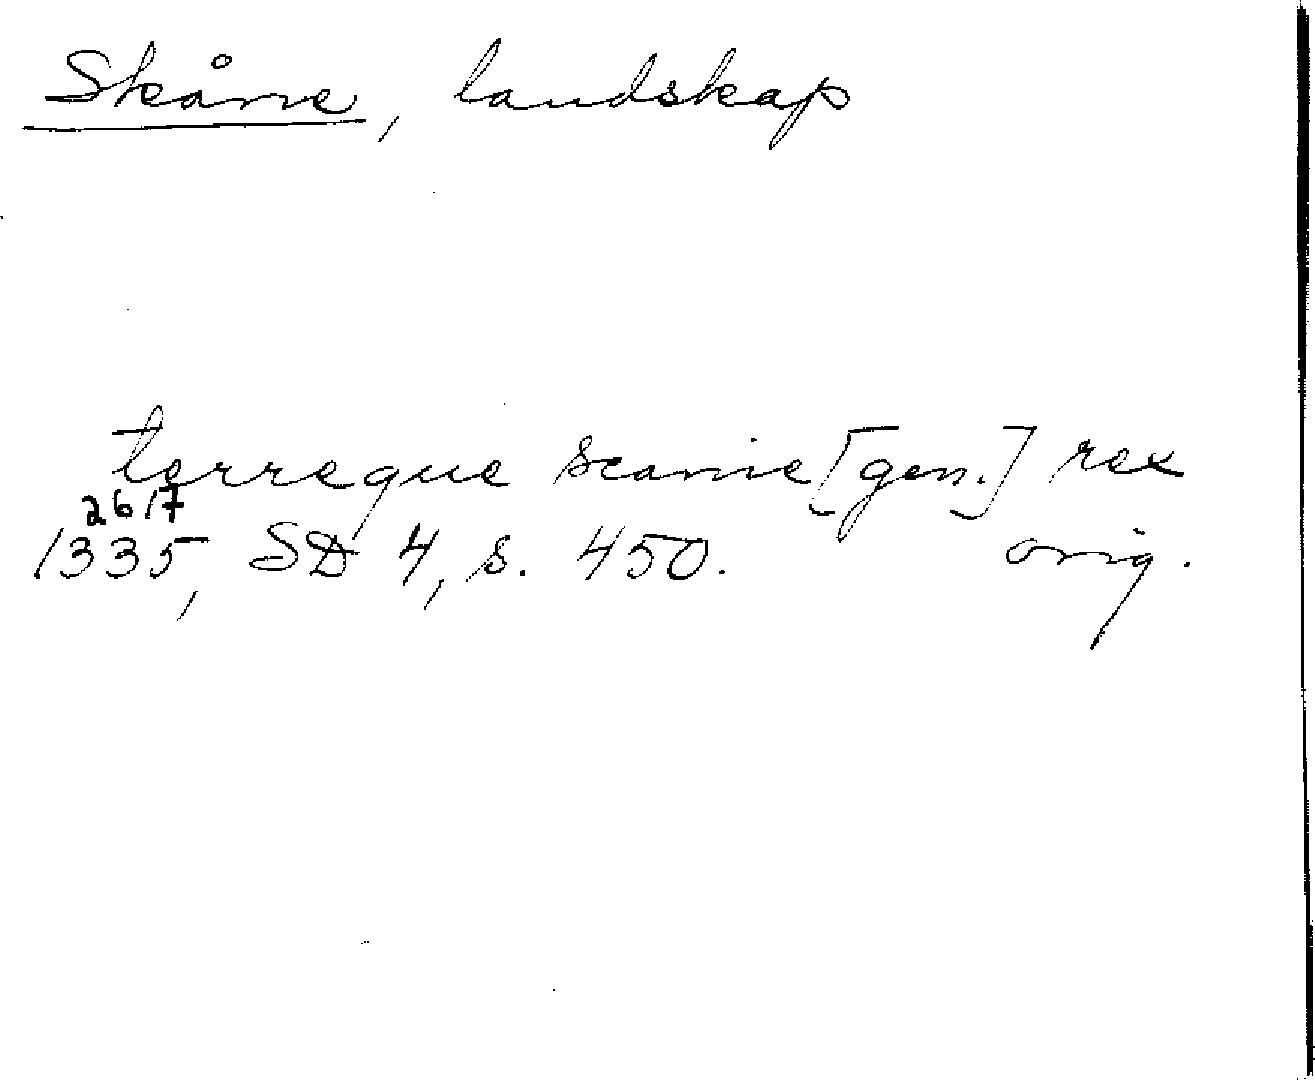 Skåne, landskap
terreque scanie [gen.] rex
26/7
1335, SD 4, s. 450. orig.